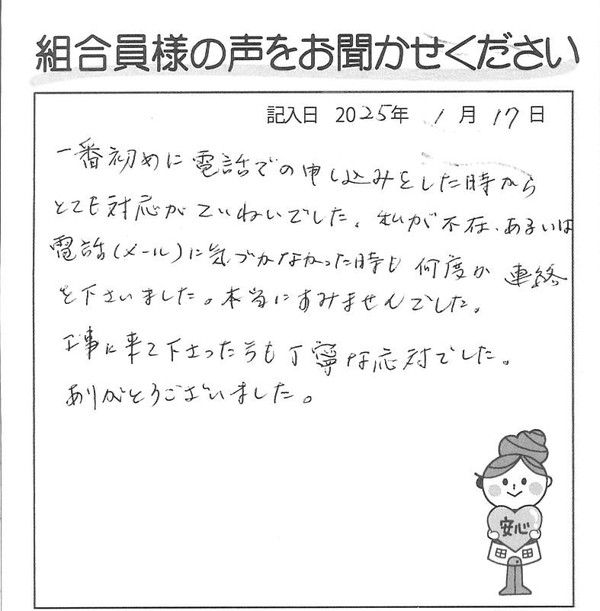 組合員様の声をお聞かせください
記入日 2025年 1月 17日
一番初めに電話での申し込みをした時から
とても対応がていねいでした。私が不在、あるいは
電話(メール)に気づかなかった時も何度か連絡
を下さいました。本当にすみませんでした。
工事に来て下さった方も丁寧な応対でした。
ありがとうございました。
安心